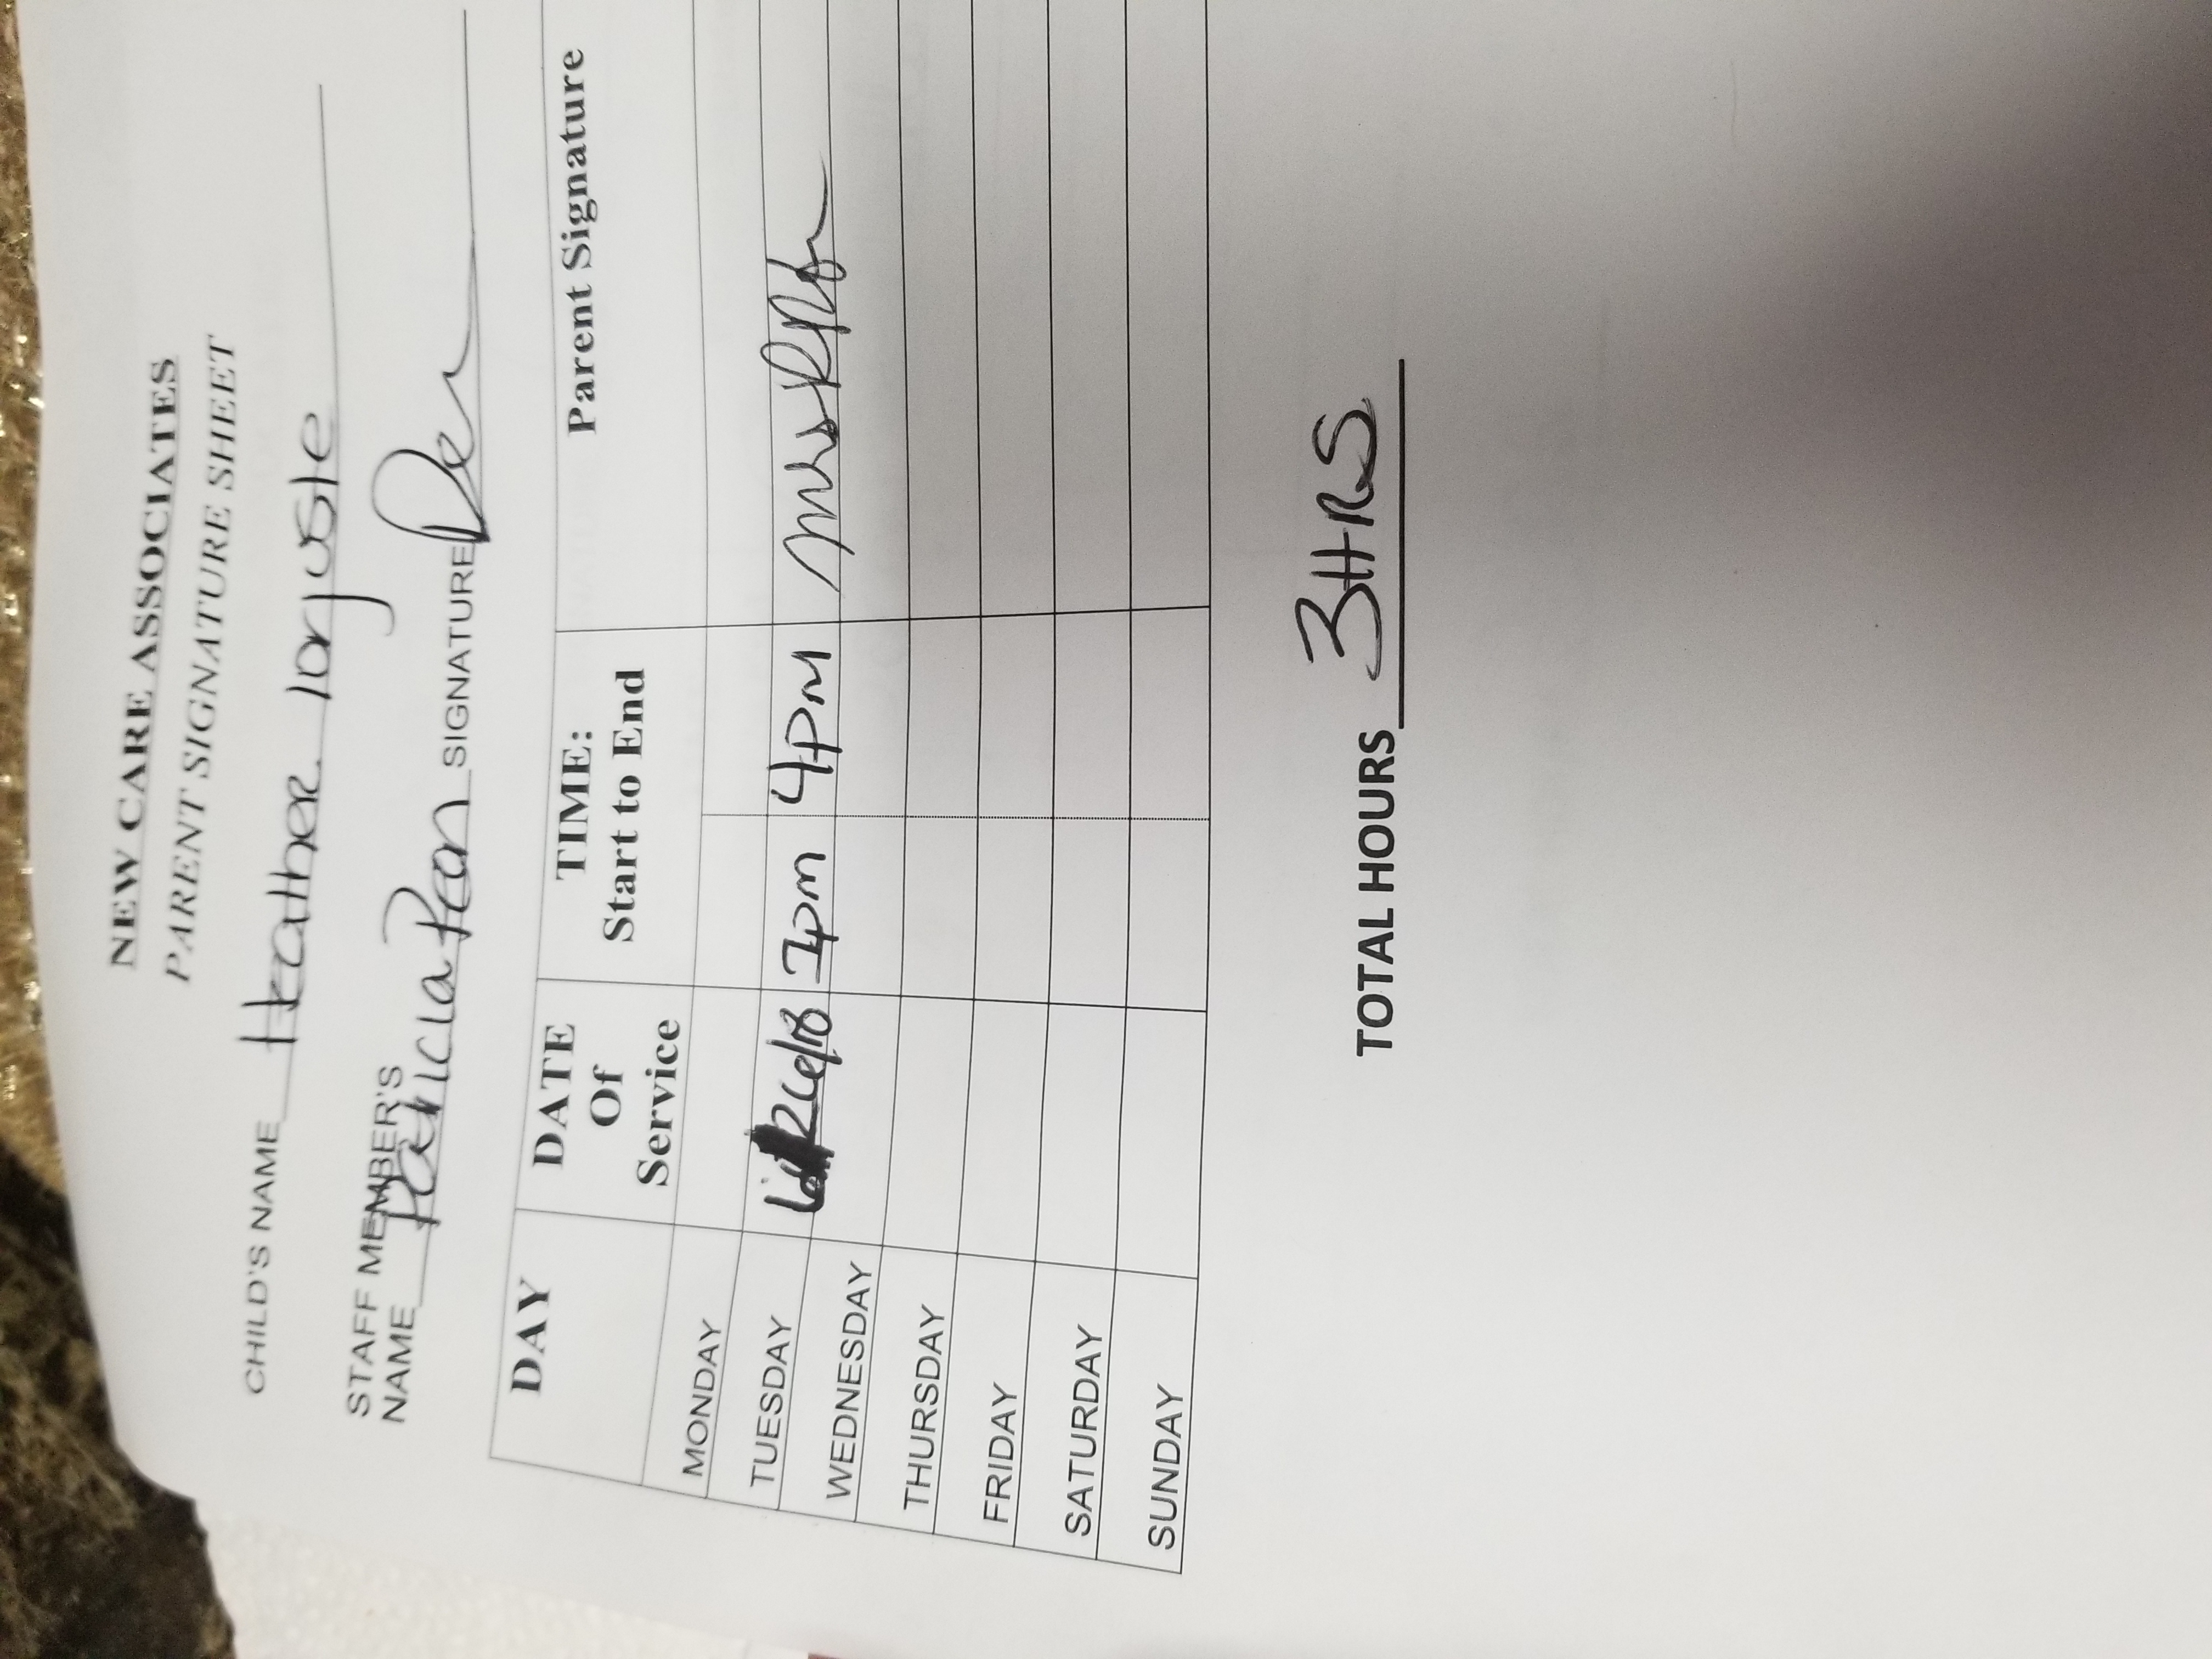 NEW CARE ASSOCIATES
PARENT SIGNATURE SHEET
CHILD'S NAME Heather
STAFF MEMBER'S
NAME Patricia SIGNATURE
DAY DATE Of Service TIME: Start to End Parent Signature
MONDAY
TUESDAY 26/18 1pm 4PM Mrs
WEDNESDAY
THURSDAY
FRIDAY
SATURDAY
SUNDAY
TOTAL HOURS 3HRS